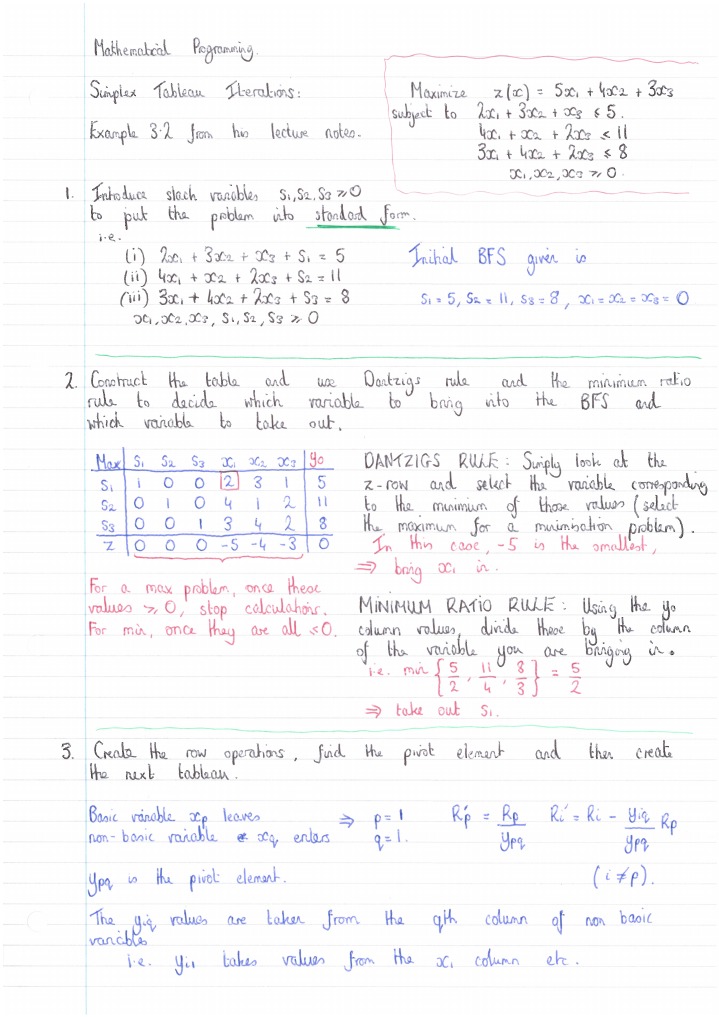 Mathematical Programming.
Simplex Tableau Iterations:
Example 3.2 from his lecture notes.
Maximize z(x) = 5x₁ + 4x₂ + 3x₃
subject to 2x₁ + 3x₂ + x₃ ≤ 5.
4x₁ + x₂ + 2x₃ ≤ 11
3x₁ + 4x₂ + 2x₃ ≤ 8
x₁, x₂, x₃ ≥ 0.
1. Introduce slack variables S₁, S₂, S₃ ≥ 0
to put the problem into standard form.
i.e.
(i) 2x₁ + 3x₂ + x₃ + S₁ = 5
(ii) 4x₁ + x₂ + 2x₃ + S₂ = 11
(iii) 3x₁ + 4x₂ + 2x₃ + S₃ = 8
x₁, x₂, x₃, S₁, S₂, S₃ ≥ 0
Initial BFS given is
S₁ = 5, S₂ = 11, S₃ = 8, x₁ = x₂ = x₃ = 0
2. Construct the table and use Dantzigs rule and the minimum ratio
rule to decide which variable to bring into the BFS and
which variable to take out.
Max S₁ S₂ S₃ x₁ x₂ x₃ y₀
S₁ 1 0 0 2 3 1 5
S₂ 0 1 0 4 1 2 11
S₃ 0 0 1 3 4 2 8
Z 0 0 0 -5 -4 -3 0
For a max problem, once these
values ≥ 0, stop calculations.
For min, once they are all ≤ 0.
DANTZIGS RULE: Simply look at the
z-row and select the variable corresponding
to the minimum of those values (select
the maximum for a minimisation problem).
In this case, -5 is the smallest,
⇒ bring x₁ in.
MINIMUM RATIO RULE: Using the y₀
column values, divide these by the column
of the variable you are bringing in.
i.e. min {5/2, 11/4, 8/3} = 5/2
⇒ take out S₁.
3. Create the row operations, find the pivot element and then create
the next tableau.
Basic variable xp leaves ⇒ p = 1 R'p = Rp/ypq Ri' = Ri - yiq/ypq Rp
non-basic variable xq enters q = 1. (i ≠ p).
ypq is the pivot element.
The yiq values are taken from the qth column of non basic
variables
i.e. yi1 takes values from the x₁ column etc.